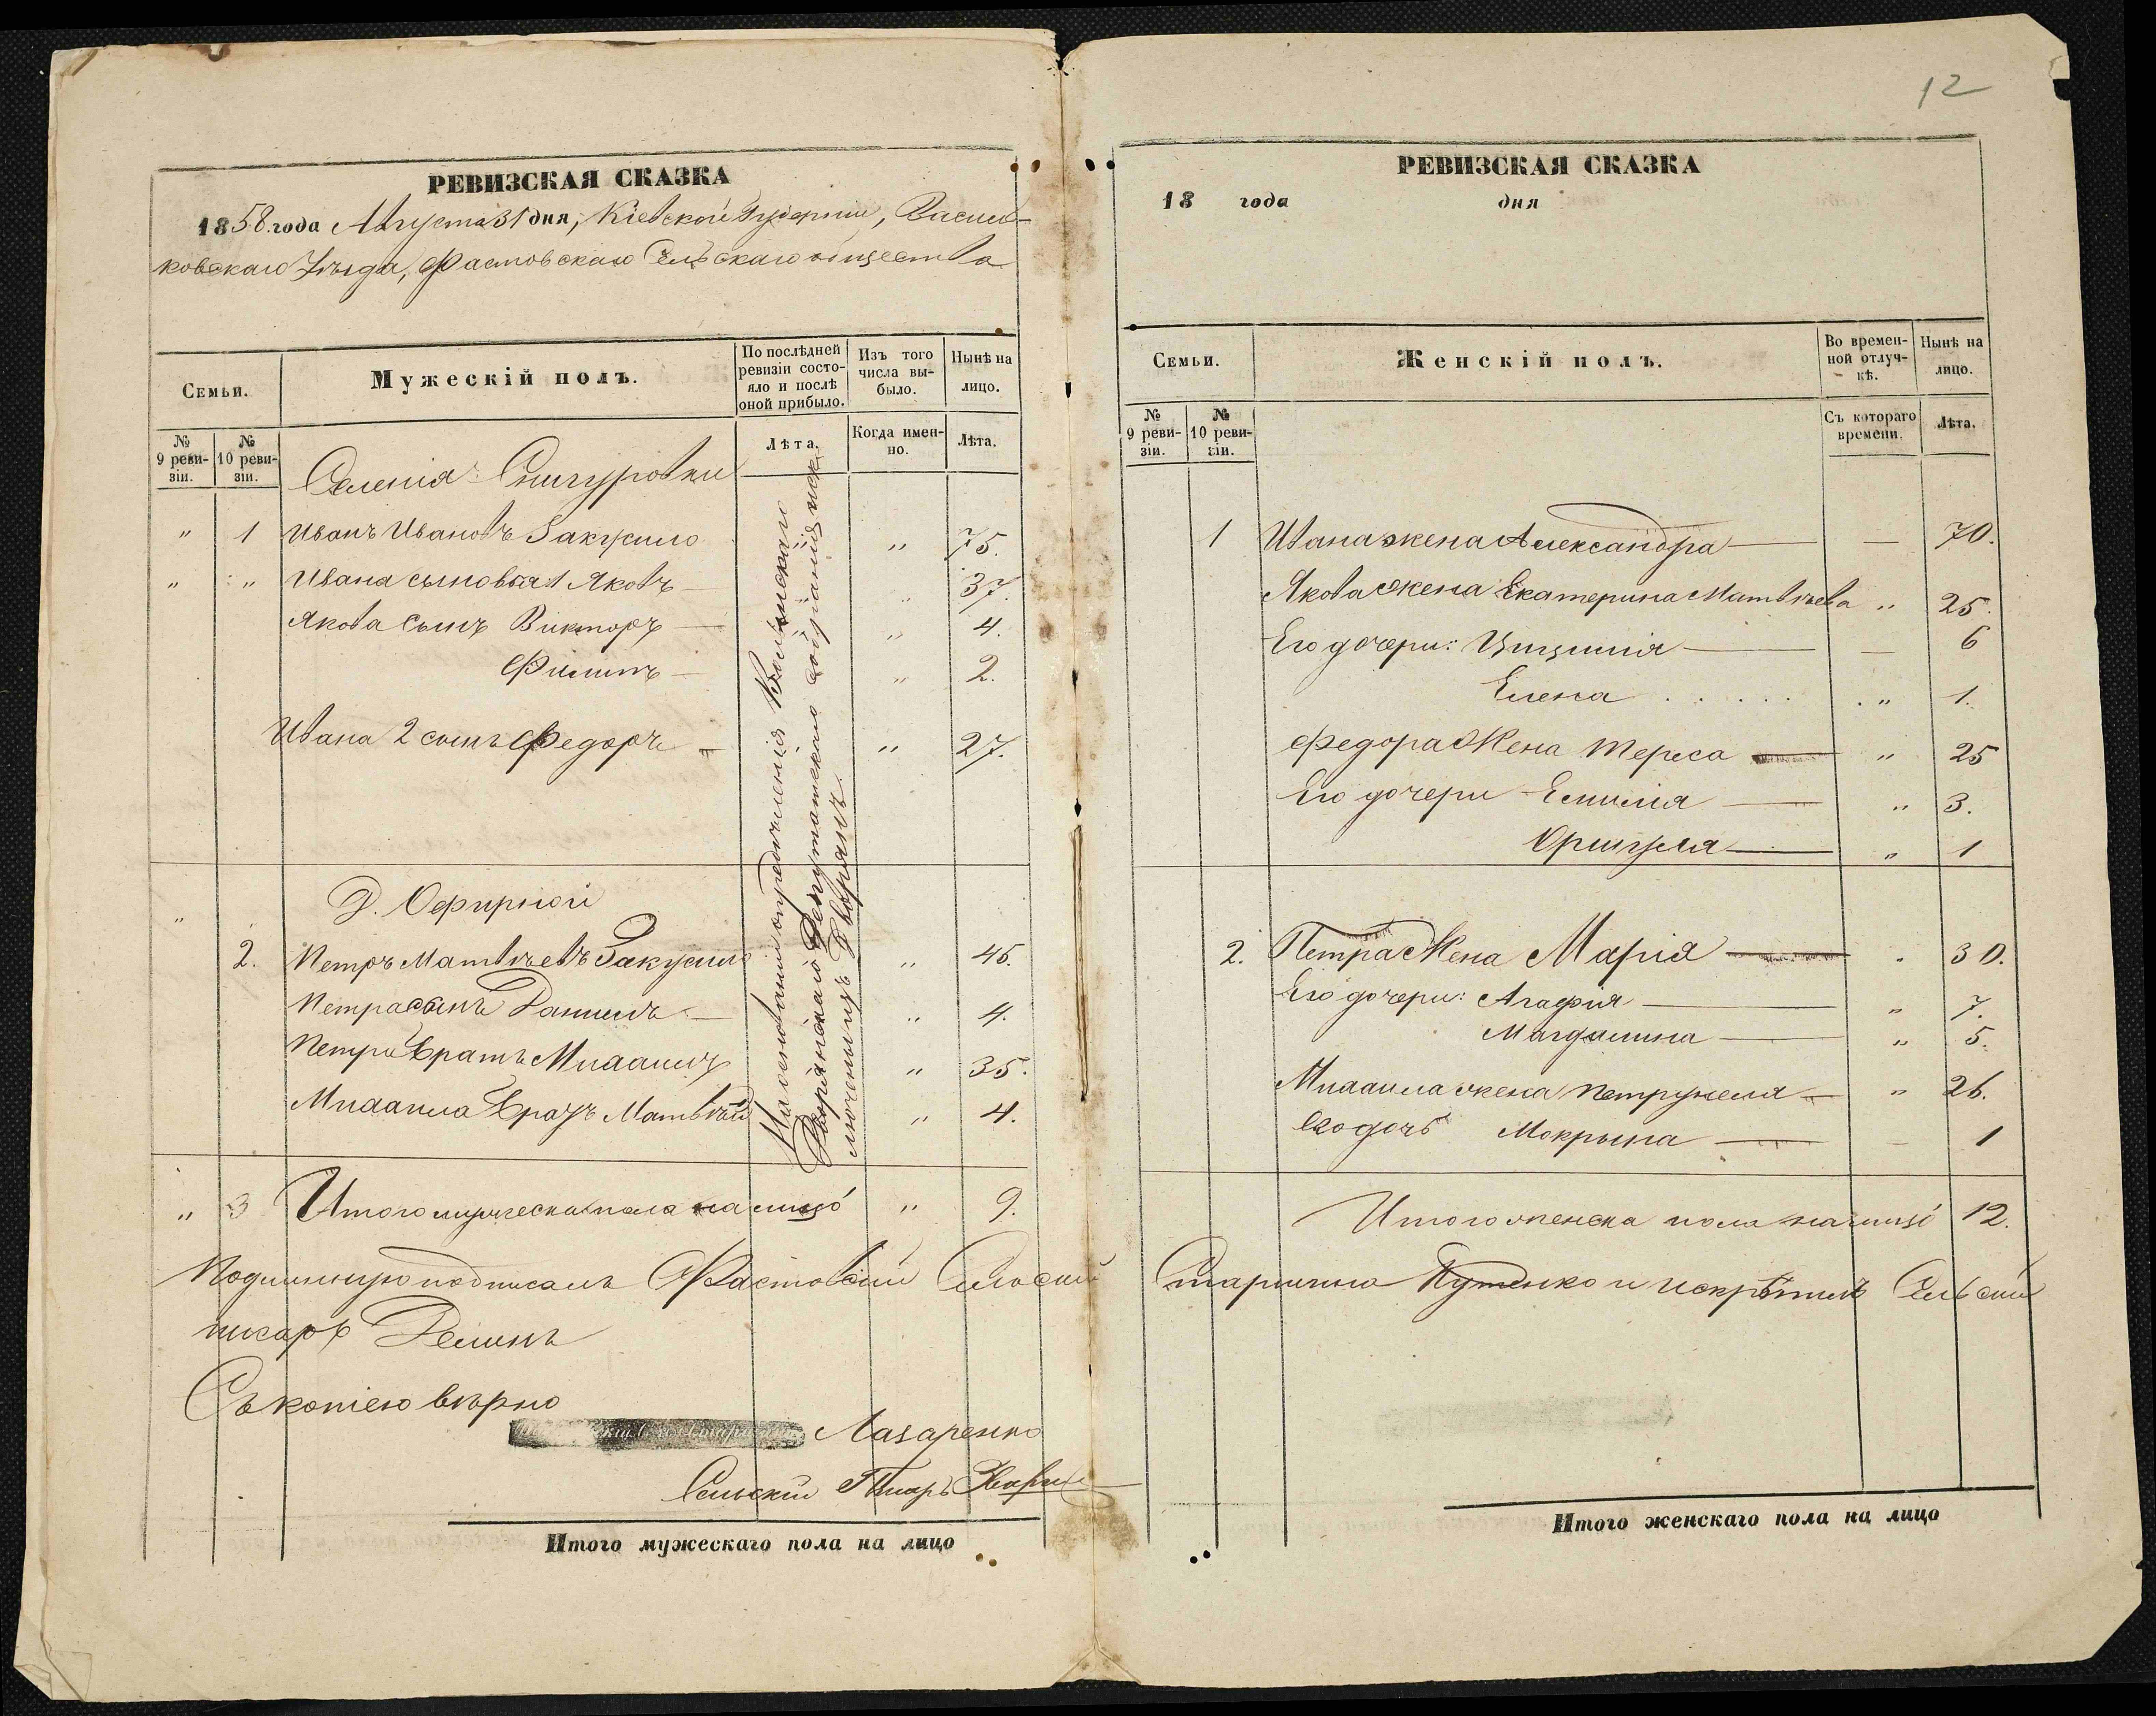 12
РЕВИЗСКАЯ СКАЗКА
1858 года Августа 31 дня, Кіевской Губерніи, Василь-
ковскаго Уѣзда, Фастовскаго Сельскаго общества
Семьи.
Мужескій полъ.
По послѣдней ревизіи состояло и послѣ оной прибыло.
Изъ того числа выбыло.
Нынѣ на лицо.
№ 9 ревизіи.
№ 10 ревизіи.
Лѣта.
Когда именно.
Лѣта.
Селенія Снигуровки
" 1 Иванъ Ивановъ Закусило " 75.
" " Ивана сыновья 1 Яковъ " 37.
Якова сынъ Викторъ — " 4.
Филипъ — " 2.
Ивана 2 сынъ Федоръ — " 27.
Д. Офирной
2. Петръ Матвѣевъ Закусило " 45.
Петра сынъ Даниилъ — " 4.
Петра братъ Михаилъ " 35.
Михаила братъ Матвѣй " 4.
На основаніи опредѣленія Волынскаго
Дворянскаго Депутатскаго собранія иск-
люченныхъ Дворянъ
" 3 Итого мужеска пола на лицо " 9.
Подлинную подписалъ Фастовскій Сельскій
писарь
Съ копіею вѣрно
Лазаренко
Сельскій Писарь
Итого мужескаго пола на лицо
РЕВИЗСКАЯ СКАЗКА
18 года дня
Семьи.
Женскій полъ.
Во временной отлучкѣ.
Нынѣ на лицо.
№ 9 ревизіи.
№ 10 ревизіи.
Съ котораго времени.
Лѣта.
1 Ивана жена Александра — — 70.
Якова жена Екатерина Матвѣева " 25.
Его дочери: — — 6
Елена . . . . . . " 1.
Федора жена Тереса — " 25
Его дочери Емилія — " 3.
Оршуля — " 1
2. Петра жена Марія — " 30.
Его дочери: Агафія — " 7.
Магдалина — " 5.
Михаила жена Петрунеля — " 26.
Его дочь Мокрына — — 1
Итого женска пола на лицо 12.
Старшина Путенко и искрѣпилъ Сельскій
Итого женскаго пола на лицо